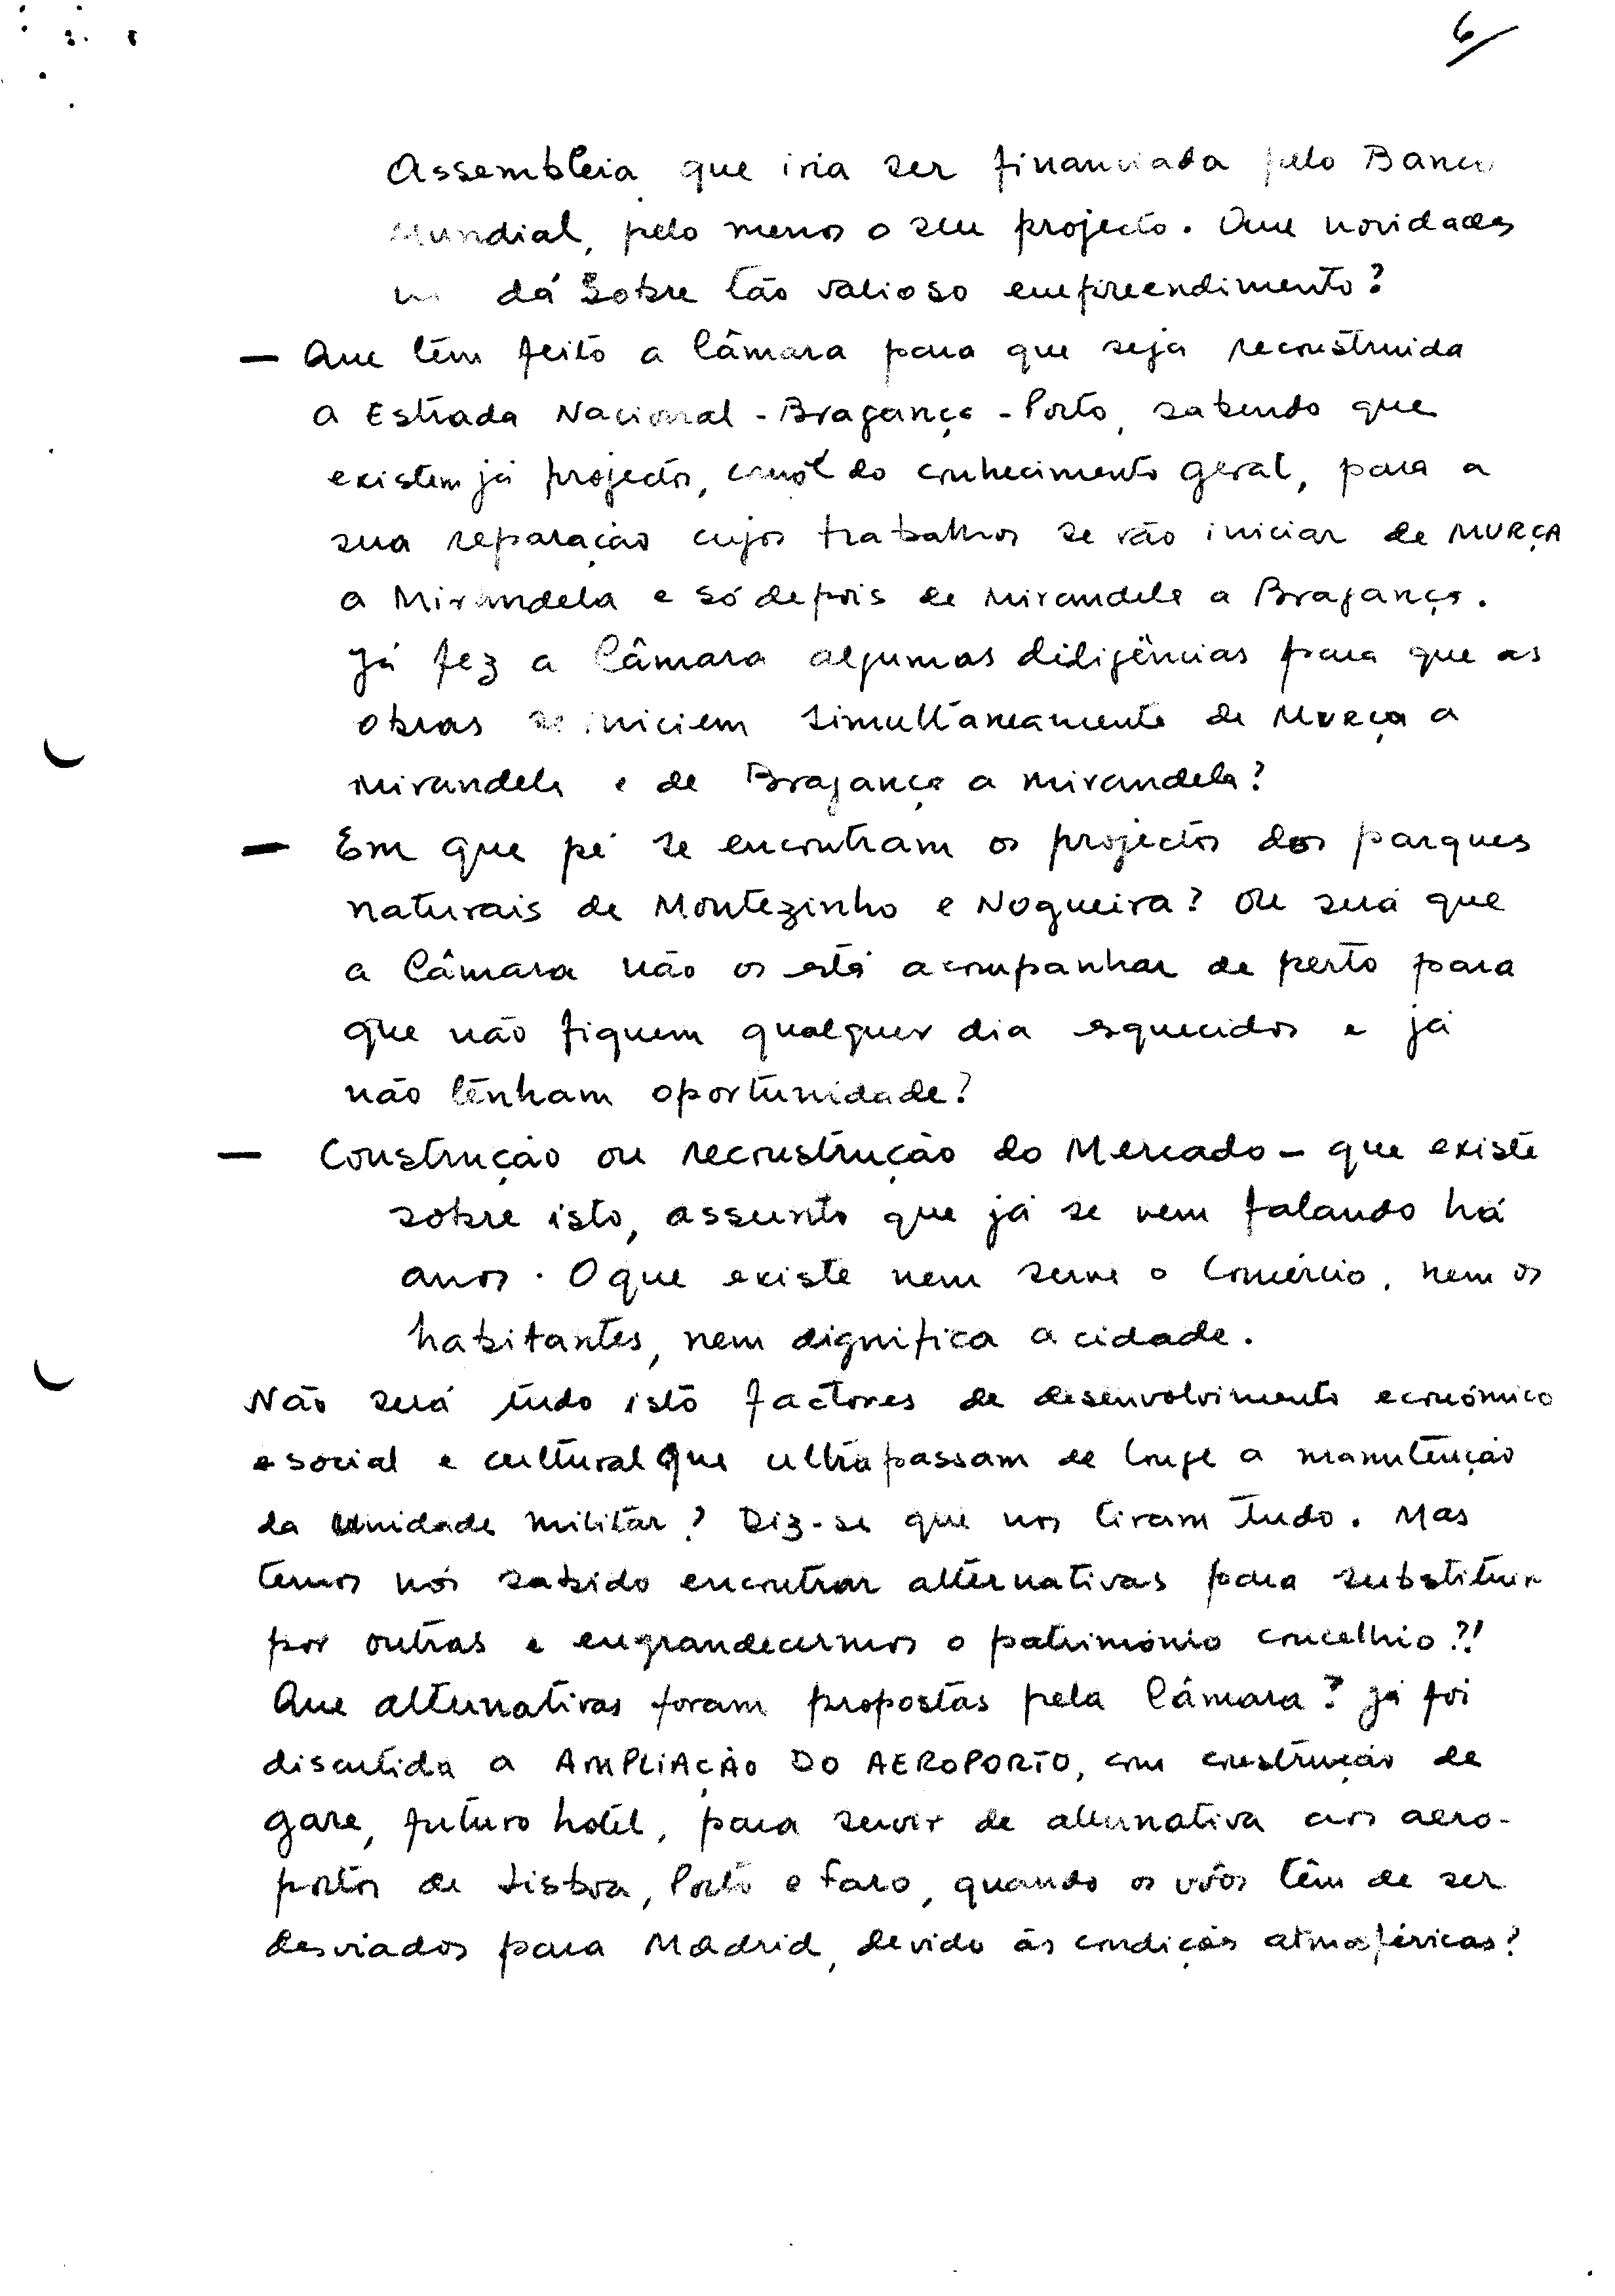 6
Assembleia que iria ser financiada pelo Banco
Mundial, pelo menos o seu projecto. Que novidades
dá sobre tão valioso empreendimento?
— Que têm feito a Câmara para que seja reconstruida
a Estrada Nacional - Bragança - Porto, sabendo que
existem já projectos, do conhecimento geral, para a
sua reparação cujos trabalhos se vão iniciar de MURÇA
a Mirandela e só depois de Mirandela a Bragança.
Já fez a Câmara algumas diligências para que as
obras se iniciem simultaneamente de Murça a
Mirandela e de Bragança a Mirandela?
— Em que pé se encontram os projectos dos parques
naturais de Montezinho e Nogueira? Ou será que
a Câmara não os está acompanhar de perto para
que não fiquem qualquer dia esquecidos e já
não tenham oportunidade?
— Construção ou reconstrução do Mercado - que existe
sobre isto, assunto que já se vem falando há
anos. O que existe nem serve o Comércio, nem os
habitantes, nem dignifica a cidade.
Não será tudo isto factores de desenvolvimento económico
e social e cultural que ultrapassam de longe a manutenção
da Unidade militar? Diz-se que nos tiram tudo. Mas
temos nós sabido encontrar alternativas para substituir
por outras e engrandecermos o património concelhio?!
Que alternativas foram propostas pela Câmara? Já foi
discutida a AMPLIAÇÃO DO AEROPORTO, com construção de
gare, futuro hotel, para servir de alternativa aos aero-
portos de Lisboa, Porto e Faro, quando os vôos têm de ser
desviados para Madrid, devido às condições atmosféricas?